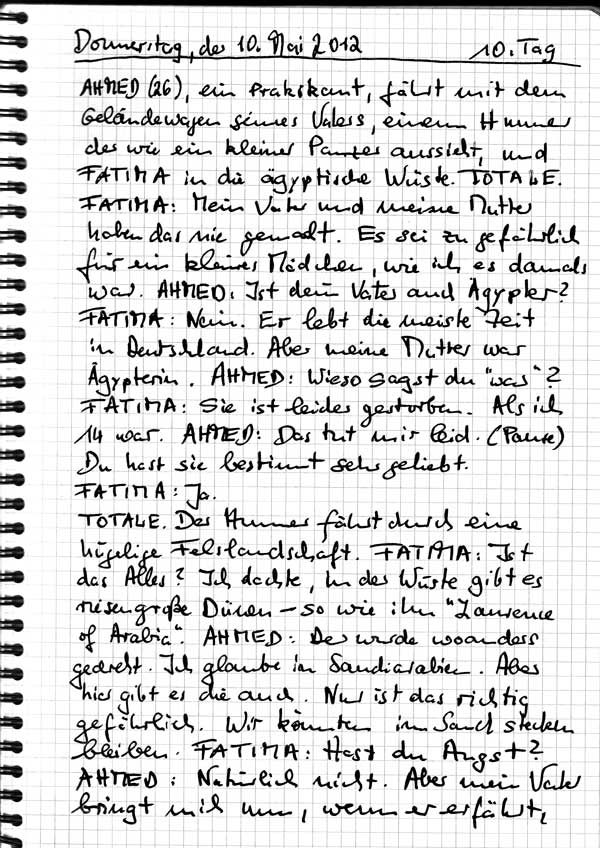 Donnerstag, den 10. Mai 2012 10. Tag
AHMED (26), ein Praktikant, fährt mit dem
Geländewagen seines Vaters, einem Hummer
der wie ein kleiner Panzer aussieht, und
FATIMA in die ägyptische Wüste. TOTALE.
FATIMA: Mein Vater und meine Mutter
haben das nie gemacht. Es sei zu gefährlich
für ein kleines Mädchen, wie ich es damals
war. AHMED: Ist dein Vater auch Ägypter?
FATIMA: Nein. Er lebt die meiste Zeit
in Deutschland. Aber meine Mutter war
Ägypterin. AHMED: Wieso sagst du "was"?
FATIMA: Sie ist leider gestorben. Als ich
14 war. AHMED: Das tut mir leid. (Pause)
Du hast sie bestimmt sehr geliebt.
FATIMA: Ja.
TOTALE. Der Hummer fährt durch eine
hügelige Felslandschaft. FATIMA: Ist
das Alles? Ich dachte, in der Wüste gibt es
riesengroße Dünen – so wie in "Lawrence
of Arabia". AHMED: Der wurde woanders
gedreht. Ich glaube in Saudiarabien. Aber
hier gibt es die auch. Nur ist das richtig
gefährlich. Wir könnten im Sand stecken
bleiben. FATIMA: Hast du Angst?
AHMED: Natürlich nicht. Aber mein Vater
bringt mich um, wenn er erfährt,